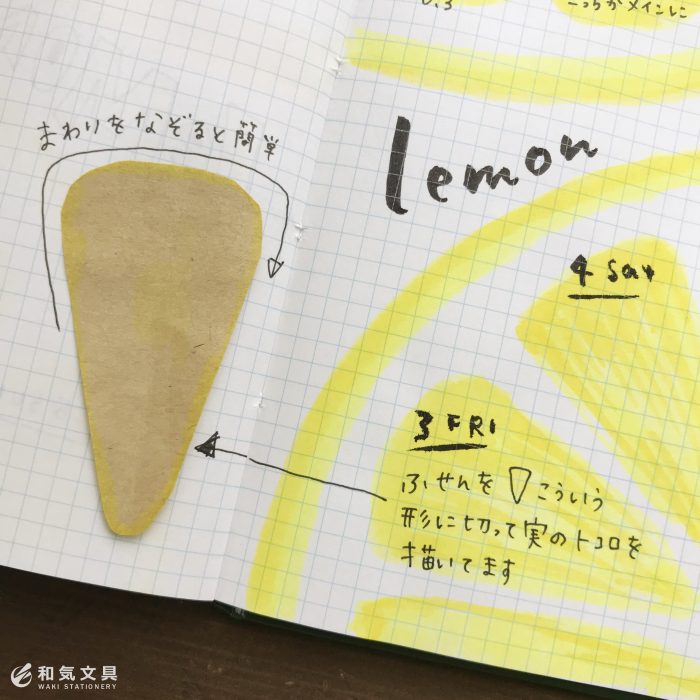 こっちがメインに
まわりをなぞると簡単
lemon
4 Sat
3 FRI
ふせんを▽こういう
形に切って実のトコロを
描いてます
和気文具
WAKI STATIONERY